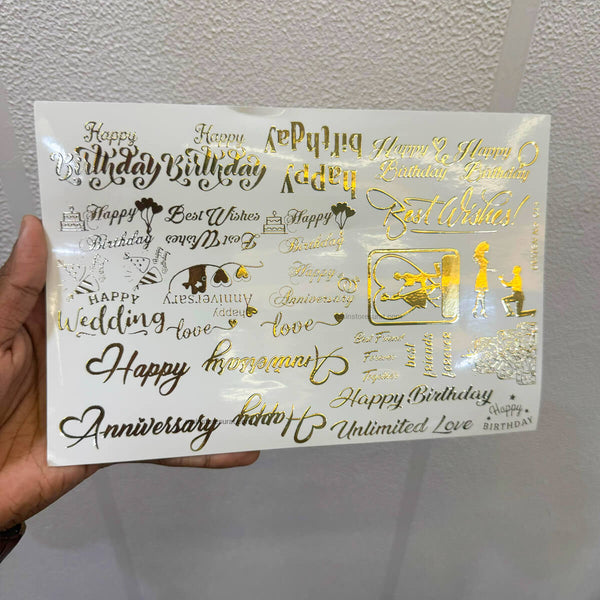 Happy
Birthday
Happy
Birthday
happy
birthday
Happy
Birthday
Happy
Birthday
Happy
Birthday
Best Wishes
Best Wishes
Happy
Birthday
Best Wishes!
Happy
Anniversary
Happy
Anniversary
HAPPY
Wedding
love
love
Best Friends
Forever
Together
best
friends
forever
Happy
Anniversary
Happy
Anniversary
Happy Birthday
Unlimited Love
Happy
BIRTHDAY